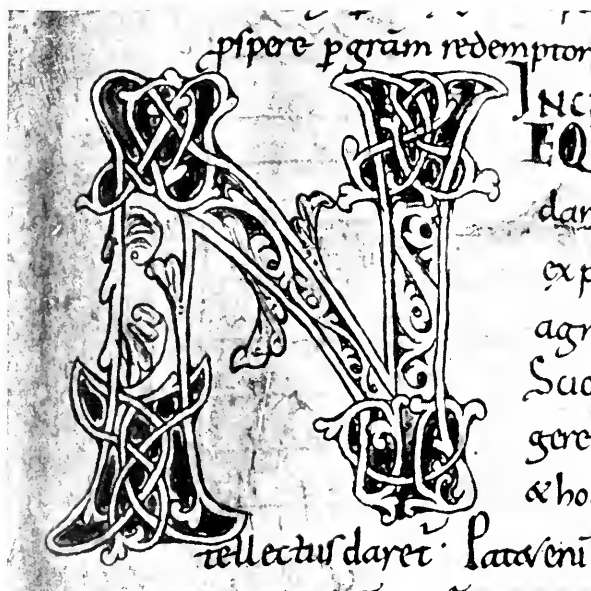 pspere p gram redemptor
N INC
EQ
dar
exp
agr
Scio
gere
& ho
tellectus daret. Pata veni